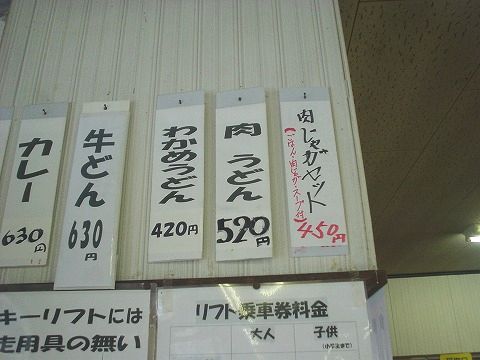 カレー
630円
牛どん
630円
わかめうどん
420円
肉 うどん
520円
肉じゃがセット
(ごはん・肉じゃが・スープ付)
450円
キーリフトには
走用具の無い
リフト乗車券料金
大人 子供
(小学生まで)